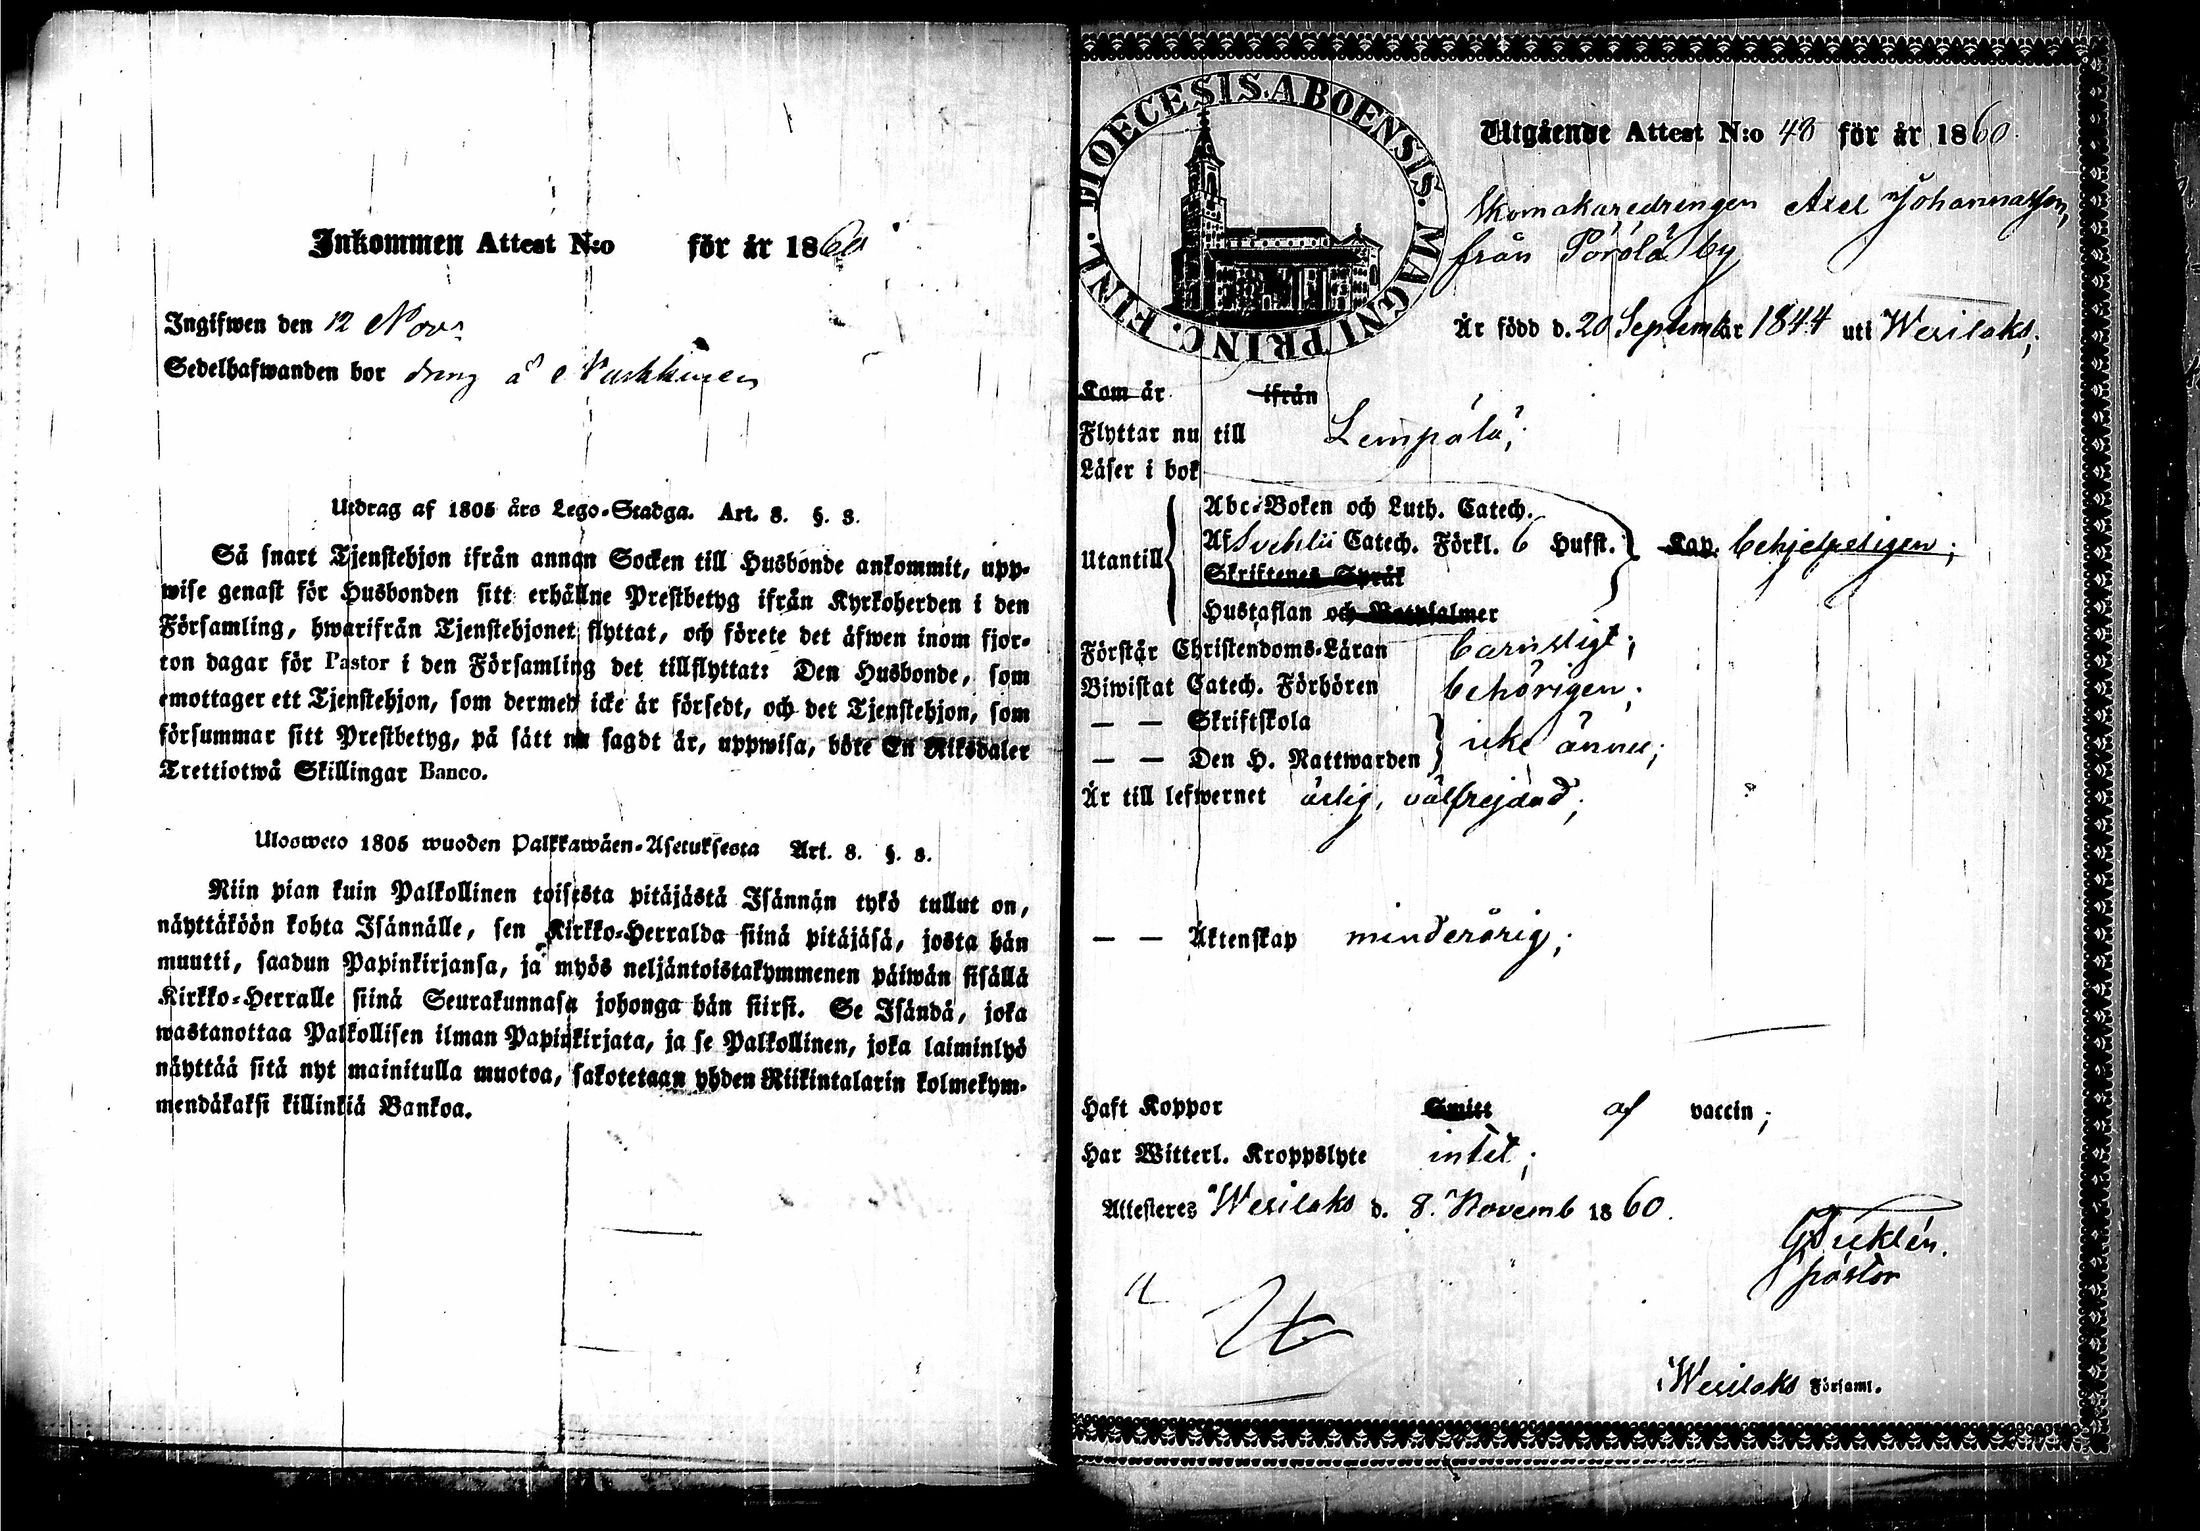 Inkommen Attest N:o för år 1860
Ingifwen den 12 Nov:
Sedelhafwanden bor dräng å
Utdrag af 1805 års Lego-Stadga. Art. 8. §. 3.
Så snart Tjenstehjon ifrån annan Socken till Husbonde ankommit, upp-
wise genast för Husbonden sitt erhållne Prestbetyg ifrån Kyrkoherden i den
Församling, hwarifrån Tjenstehjonet flyttat, och förete det äfwen inom fjor-
ton dagar för Pastor i den Församling det tillflyttat: Den Husbonde, som
emottager ett Tjenstehjon, som dermed icke är försedt, och det Tjenstehjon, som
försummar sitt Prestbetyg, på sätt nu sagdt är, uppwisa, böte En Riksdaler
Trettiotwå Skillingar Banco.
Ulosweto 1805 wuoden Palkkawäen-Asetuksesta Art. 8. §. 3.
Niin pian kuin Palkollinen toisesta pitäjästä Isännän tykö tullut on,
näyttäköön kohta Isännälle, sen Kirkko-Herralda siinä pitäjäsä, josta hän
muutti, saadun Papinkirjansa, ja myös neljäntoistakymmenen päiwän sisällä
Kirkko-Herralle siinä Seurakunnasa johonga hän siirsi. Se Isändä, joka
wastanottaa Palkollisen ilman Papinkirjata, ja se Palkollinen, joka laiminlyö
näyttää sitä nyt mainitulla muotoa, sakotetaan yhden Riikintalarin kolmekym-
mendäkaksi killinkiä Bankoa.
DIOECESIS. ABOENSIS. MAGNI PRINC. FINL.
Utgående Attest N:o 48 för år 1860.
Skomakaredrengen Axel Johannasson,
från Pörölä by
Är född d. 20 Septembär 1844 uti Wesilaks;
Kom år ifrån
Flyttar nu till Lempälä;
Läser i bok
Abc-Boken och Luth. Catech.
Utantill Af Svebilii Catech. Förkl. 6 Hufst. Kap. behjelpeligen;
Skriftenes Språk
Hustaflan och Botpsalmer
Förstår Christendoms-Läran barnsligt;
Biwistat Catech. Förhören behörigen;
— — Skriftskola
— — Den H. Nattwarden icke ännu;
Är till lefwernet ärlig, välfrejdad;
— — Äktenskap minderårig;
Haft Koppor Smitt af vaccin;
Har Witterl. Kroppslyte intet;
Attesteres Wesilaks d. 8. Novemb 1860.
pastor
i Wesilaks Församl.